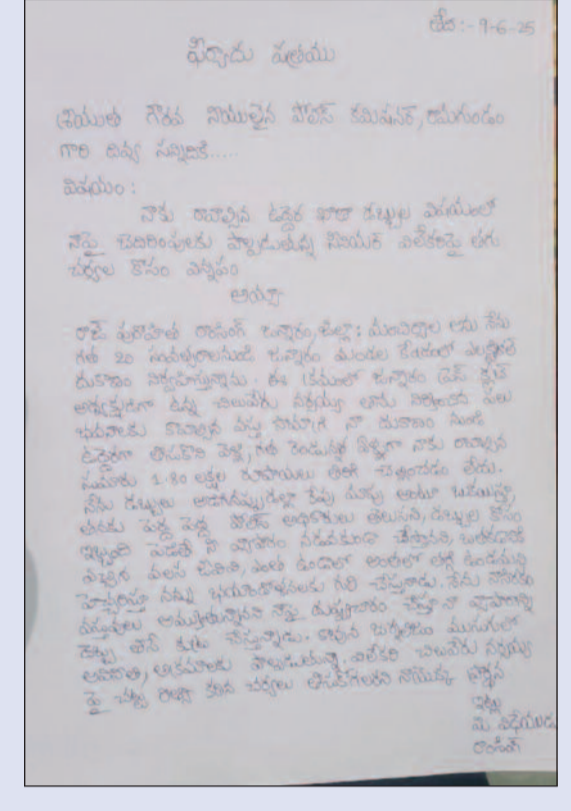 తేది:- 9-6-25
ఫిర్యాదు పత్రము
శ్రీయుత గౌరవ నియులైన పోలీస్ కమిషనర్, రామగుండం
గారి దివ్య సన్నిదికి.....
విషయం :
నాకు రావాల్సిన ఉద్దెర ఖాతా డబ్బుల విషయంలో
నాపై బెదిరింపులకు పాల్పడుతున్న సీనియర్ విలేకరిపై తగు
చర్యల కోసం విన్నపం
అయ్యా
రాజ్ పురోహిత్ రాంసింగ్ జన్నారం, జిల్లా: మంచిర్యాల అను నేను
గత 20 సంవత్సరాలనుండి జన్నారం మండల కేంద్రంలో
దుకాణం నిర్వహిస్తున్నాను. ఈ క్రమంలో జన్నారం ప్రెస్ క్లబ్
అధ్యక్షుడిగా ఉన్న చిలువేరు నర్సయ్య తాను నిర్మించిన పలు
భవనాలకు కావాల్సిన వస్తు సామాగ్రి నా దుకాణం నుండి
ఉద్దెరగా తీసుకొని వెళ్లి, గత రెండున్నర ఏళ్ళుగా నాకు రావాల్సిన
సుమారు 1.80 లక్షల రూపాయలు తిరిగి చెల్లించడం లేదు.
నేను డబ్బులు అడిగినప్పుడల్లా రేపు మాపు అంటూ
తనకు పెద్ద పెద్ద పోలీస్ అధికారులు తెలుసని, డబ్బుల కోసం
ఇబ్బంది పెడితే నీ వ్యాపారం నడవకుండా చేస్తానని, బతకడానికి
వలస వచ్చిన ఎంత ఉండాలో అంతలో ఉండమని
హెచ్చరిస్తూ నన్ను భయాందోళనలకు గురి చేస్తున్నాడు. నేను నాసిరకం
వస్తువులు అమ్ముతున్నానని నాపై దుష్ప్రచారం చేస్తూ నా వ్యాపారాన్ని
చేస్తున్నాడు. కావున జర్నలిజం ముసుగులో
అవినీతి, అక్రమాలకు పాల్పడుతున్న విలేకరి చిలువేరు నర్సయ్య
పై చట్ట రీత్యా కఠిన చర్యలు తీసుకోగలరని నాయొక్క ప్రార్థన
ఇట్లు
మీ విధేయుడు
రాంసింగ్